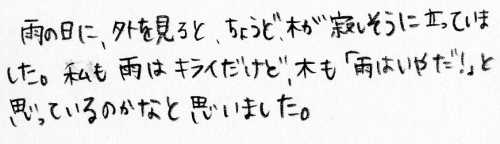 雨の日に、外を見ると、ちょうど、木が寂しそうに立っていま
した。私も雨はキライだけど、木も「雨はいやだ!」と
思っているのかなと思いました。